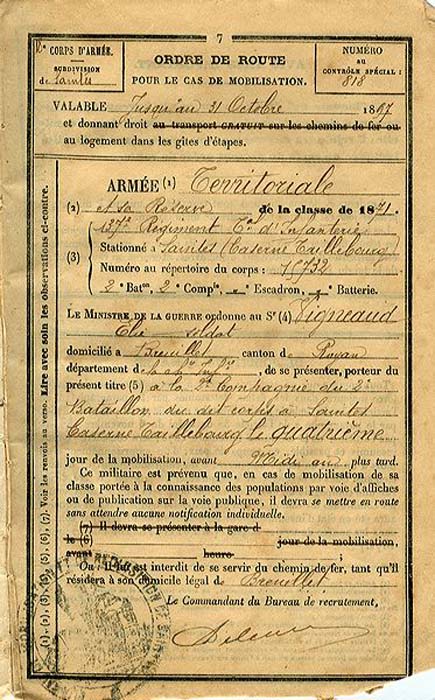 7
CORPS D'ARMÉE.
SUBDIVISION
de Saintes
ORDRE DE ROUTE
POUR LE CAS DE MOBILISATION.
NUMÉRO
AU
CONTRÔLE SPÉCIAL :
818
VALABLE Jusqu'au 31 Octobre 1897
et donnant droit au transport GRATUIT sur les chemins de fer ou
au logement dans les gîtes d'étapes.
ARMÉE (1) Territoriale
(2) et sa Réserve de la classe de 1871.
137e Régiment Tal d'Infanterie
(3) Stationné à Saintes (Caserne Taillebourg)
Numéro au répertoire du corps : 15732
2e Baton, 2e Compie, Escadron, Batterie.
LE MINISTRE DE LA GUERRE ordonne au Sr (4) Vigneaud
Elie soldat
domicilié à Breuillet canton de Royan
département de la Chte Infre, de se présenter, porteur du
présent titre (5) à la 2e Compagnie du 2e
Bataillon du dit corps à Saintes
Caserne Taillebourg, le quatrième
jour de la mobilisation, avant Midi au plus tard.
Ce militaire est prévenu que, en cas de mobilisation de sa
classe portée à la connaissance des populations par voie d'affiches
ou de publication sur la voie publique, il devra se mettre en route
sans attendre aucune notification individuelle.
(7) Il devra se présenter à la gare d
le (6) jour de la mobilisation,
avant heure
Ou : Il lui est interdit de se servir du chemin de fer, tant qu'il
résidera à son domicile légal de Breuillet
Le Commandant du Bureau de recrutement,
(1), (2), (3), (4), (5), (6), (7). Voir les renvois au verso. Lire avec soin les observations ci-contre.